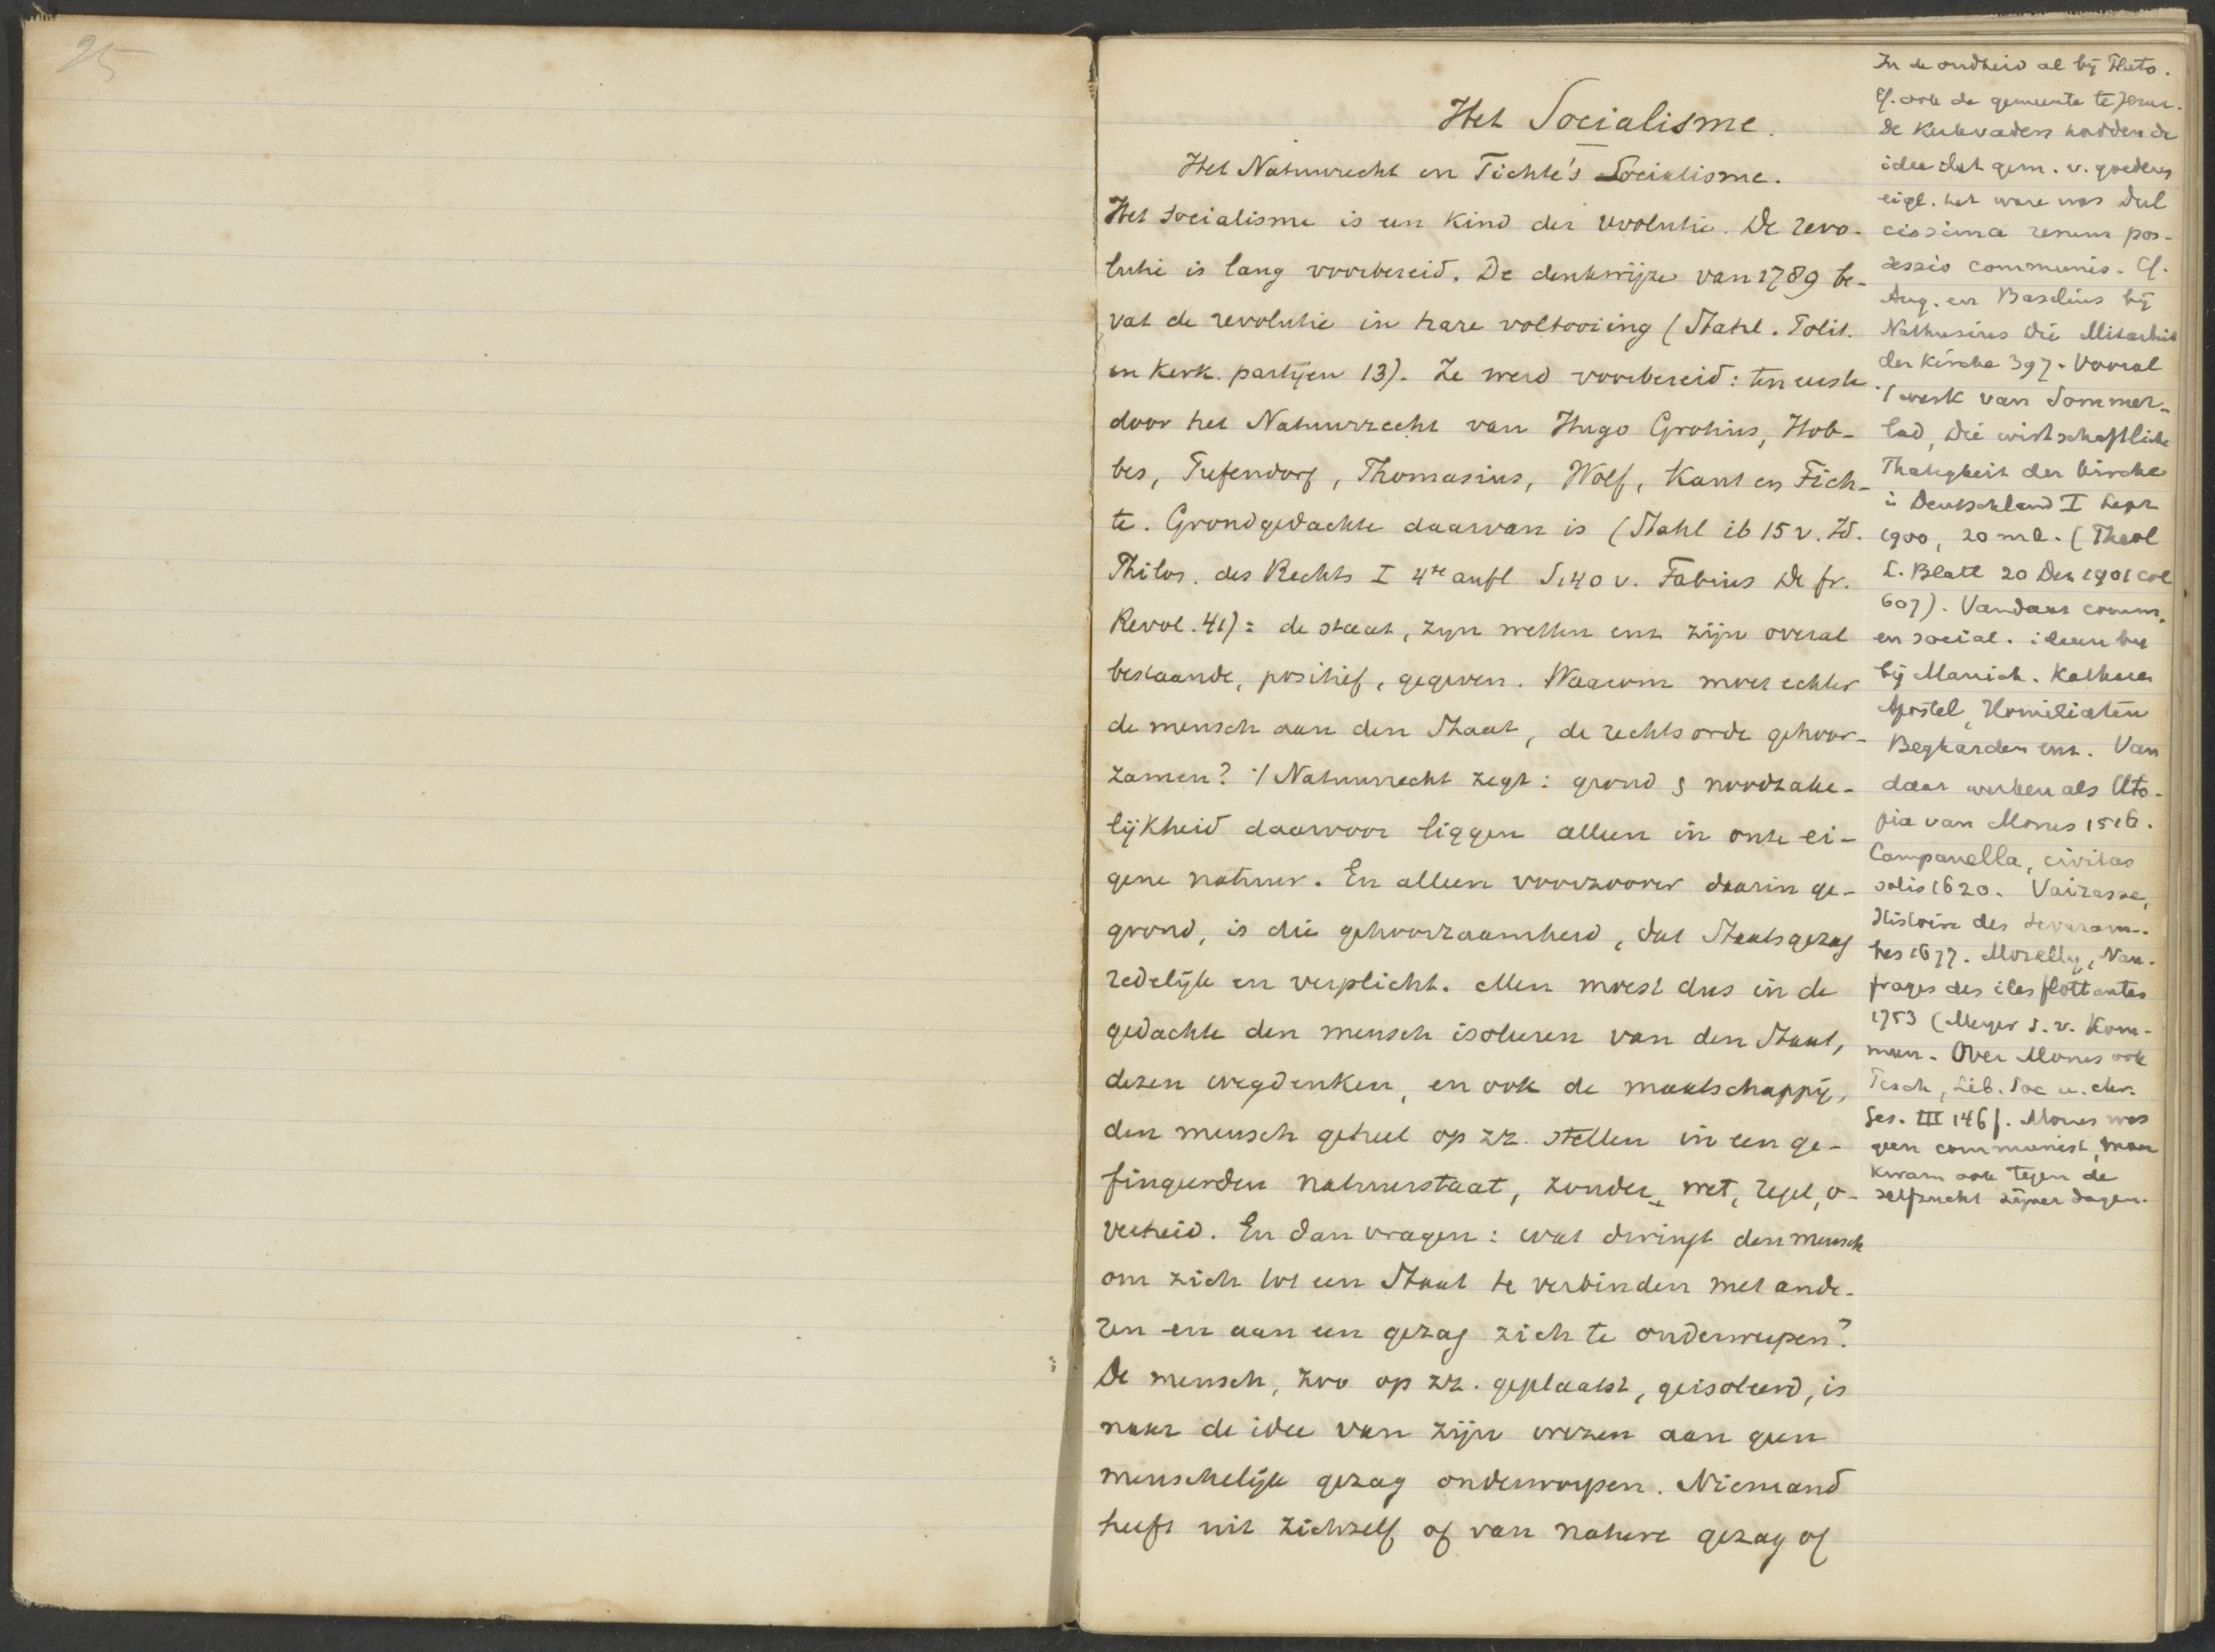 25
Het Socialisme.
Het Natuurrecht en Fichte's Socialisme.
Het Socialisme is een kind der revolutie. De revo-
lutie is lang voorbereid. De denkwijze van 1789 be-
vat de revolutie in hare voltooiing (Stahl. Polit.
en Kerk. partijen 13). Ze werd voorbereid: ten eerste
door het Natuurrecht van Hugo Grotius, Hob-
bes, Pufendorf, Thomasius, Wolf, Kant en Fich-
te. Grondgedachte daarvan is (Stahl ib 15 v. Id.
Philos. des Rechts I 4te aufl. S. 140 v. Fabius De fr.
Revol. 41): de staat, zijn wetten enz zijn overal
bestaande, positief, gegeven. Waarom moet echter
de mensch aan den Staat, de rechtsorde gehoor-
zamen? 't Natuurrecht zegt: grond & noodzake-
lijkheid daarvoor liggen alleen in onze ei-
gene natuur. En alleen voorzoover daarin ge-
grond, is die gehoorzaamheid, dat Staatsgezag
redelijk en verplicht. Men moest dus in de
gedachte den mensch isoleeren van den Staat,
dezen wegdenken, en ook de maatschappij,
den mensch geheel op zz. stellen in een ge-
fingeerden natuurstaat, zonder wet, regel, o-
verheid. En dan vragen: wat dwingt den mensch
om zich tot een Staat te verbinden met ande-
ren en aan een gezag zich te onderwerpen?
De mensch, zoo op zz. geplaatst, geisoleerd, is
naar de idee van zijn wezen aan geen
menschelijk gezag onderworpen. Niemand
heeft uit zichzelf of van nature gezag of
In de oudheid al bij Plato.
Cf. ook de gemeente te Jerus.
De Kerkvaders hadden de
idee dat gem. v. goederen
eigl. het ware was Dul
cissima rerum pos-
sessio communis. Cf.
Aug. en Basilius bij
Nathusius Die Mitarbeit
der Kirche 397. Vooral
't werk van Sommer-
lad, Die wirtschaftliche
Thatigkeit der Kirche
i Deutschland I Leipz
1900, 20 mk. (Theol
L. Blatt 20 Dez 1901 col
607). Vandaar comm.
en social. ideeen
bij Manich. Katharen
Apostel, Humiliaten
Begharden enz. Van
daar werken als Uto-
pia van Morus 1516.
Campanella, civitas
solis 1620. Vairasse,
Histoire des Severam-
bes 1677. Morelly, Nau-
frages des iles flottantes
1753 (Meyer s. v. Kom-
mun. Over Morus ook
Pesch, Lib. Soc u. chr.
Ges. III 146f. Morus was
geen communist, maar
kwam ook tegen de
zelfzucht zijner dagen.